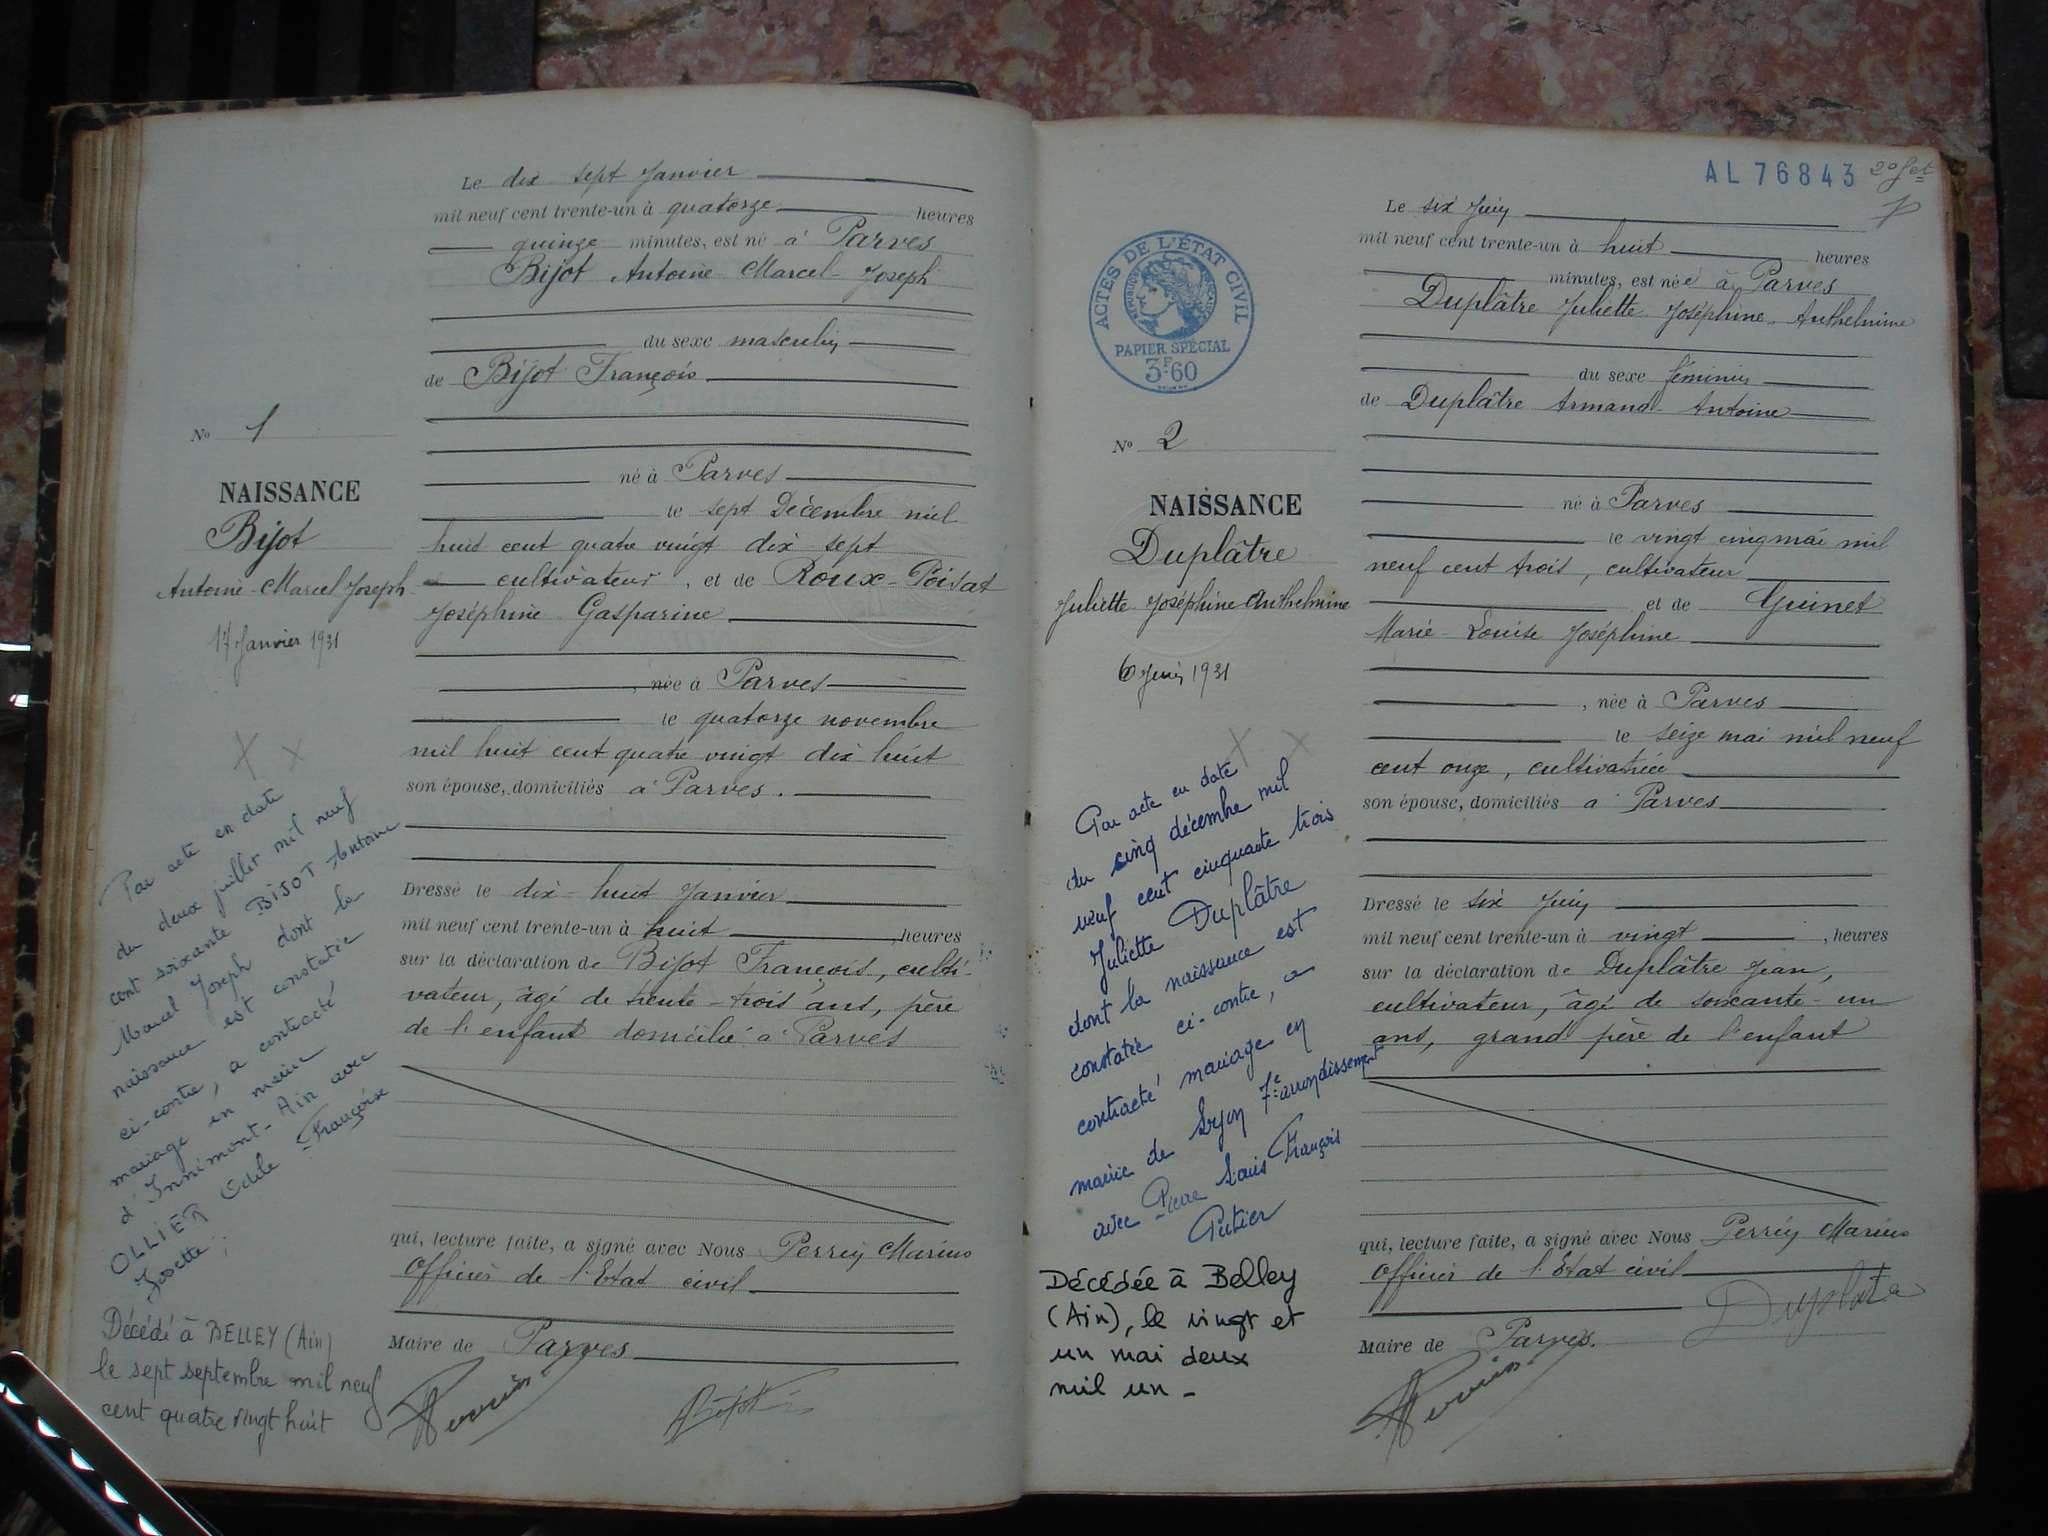 Le dix sept Janvier
mil neuf cent trente-un à quatorze heures
quinze minutes, est né à Parves
Bijot Antoine Marcel Joseph
du sexe masculin
de Bijot François
né à Parves
le sept Décembre mil
huit cent quatre vingt dix sept
cultivateur, et de Roux-Poisat
Joséphine Gasparine
, née à Parves
le quatorze novembre
mil huit cent quatre vingt dix huit
son épouse, domiciliés à Parves.
Dressé le dix-huit Janvier
mil neuf cent trente-un à huit, heures
sur la déclaration de Bijot François, culti-
vateur, âgé de trente-trois ans, père
de l'enfant domicilié à Parves
qui, lecture faite, a signé avec Nous Perrin Marius
Officier de l'Etat civil
Maire de Parves
Perrin
No 1
NAISSANCE
Bijot
Antoine-Marcel-Joseph
17 Janvier 1931
Par acte en date
du deux juillet mil neuf
cent soixante BIJOT Antoine
Marcel Joseph dont la
naissance est constatée
ci-contre, a contracté
mariage en mairie
d'Innimont-Ain avec
OLLIER Odile Françoise
Josette.
Décédé à BELLEY (Ain)
le sept septembre mil neuf
cent quatre vingt huit
AL 76843
Le six Juin
mil neuf cent trente-un à huit heures
minutes, est née à Parves
Duplâtre Juliette Joséphine Anthelmine
du sexe féminin
de Duplâtre Armand-Antoine
né à Parves
le vingt cinq mai mil
neuf cent trois, cultivateur
et de Guinet
Marie-Louise Joséphine
, née à Parves
le seize mai mil neuf
cent onze, cultivatrice
son épouse, domiciliés à Parves
Dressé le six Juin
mil neuf cent trente-un à vingt, heures
sur la déclaration de Duplâtre Jean,
cultivateur, âgé de soixante-un
ans, grand père de l'enfant
qui, lecture faite, a signé avec Nous Perrin Marius
Officier de l'Etat civil
Duplatre
Maire de Parves.
Perrin
ACTES DE L'ÉTAT CIVIL
RÉPUBLIQUE FRANÇAISE
PAPIER SPÉCIAL
3F60
No 2
NAISSANCE
Duplâtre
Juliette Joséphine Anthelmine
6 Juin 1931
Par acte en date
du cinq décembre mil
neuf cent cinquante trois
Juliette Duplâtre
dont la naissance est
constatée ci-contre, a
contracté mariage en
mairie de Lyon 7e arrondissement
avec Pierre Louis François
Décédée à Belley
(Ain), le vingt et
un mai deux
mil un -